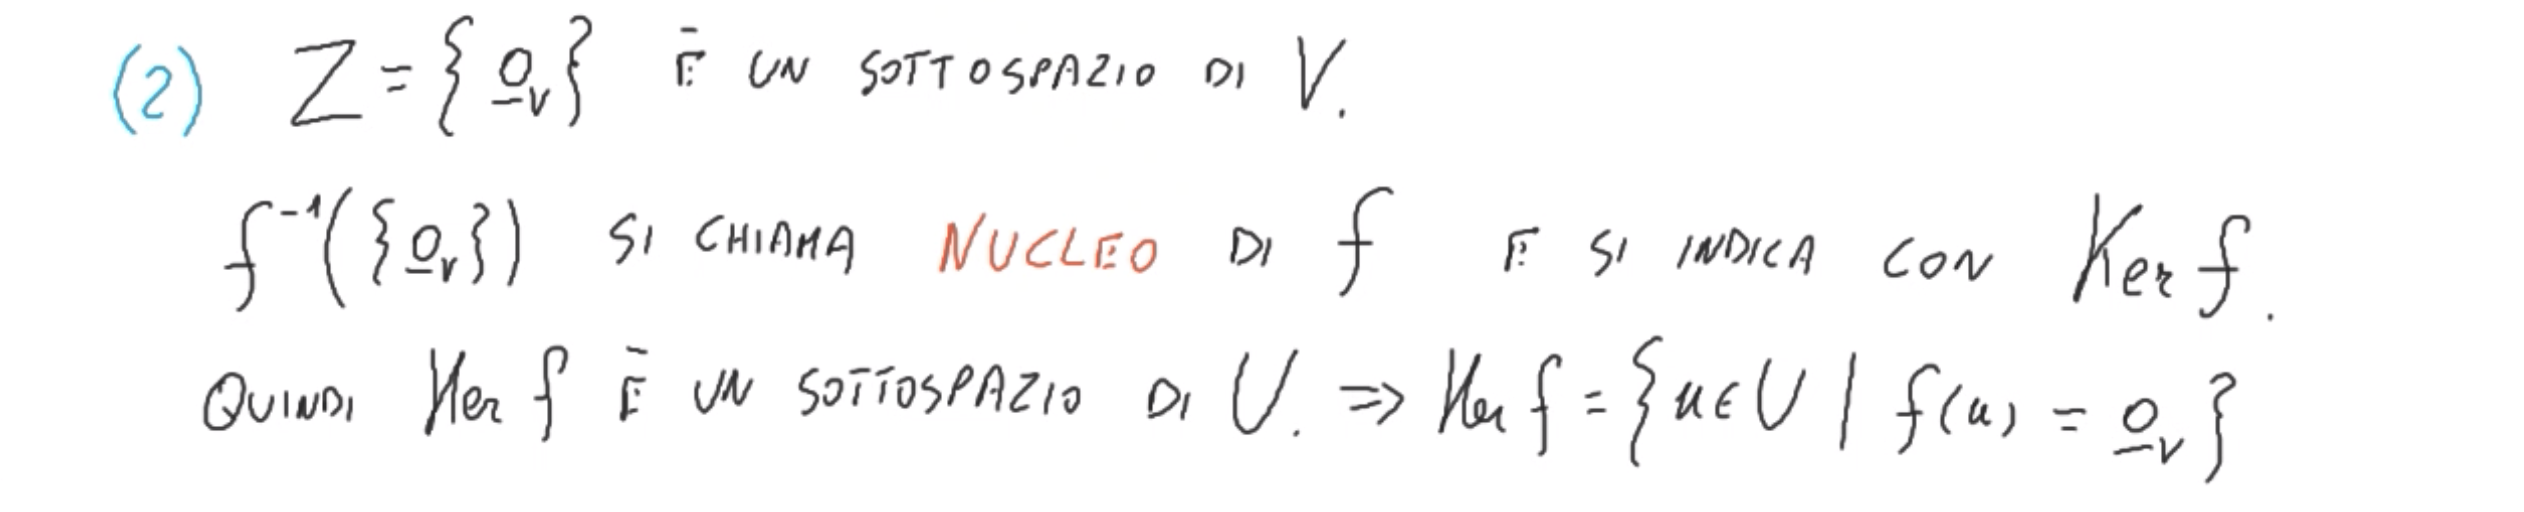 (2) Z = {0̲ᵥ} Ē UN SOTTOSPAZIO DI V.
f⁻¹({0̲ᵥ}) SI CHIAMA NUCLEO DI f E SI INDICA CON Ker f.
QUINDI Ker f Ē UN SOTTOSPAZIO DI U. => Ker f = {u ∈ U | f(u) = 0̲ᵥ}